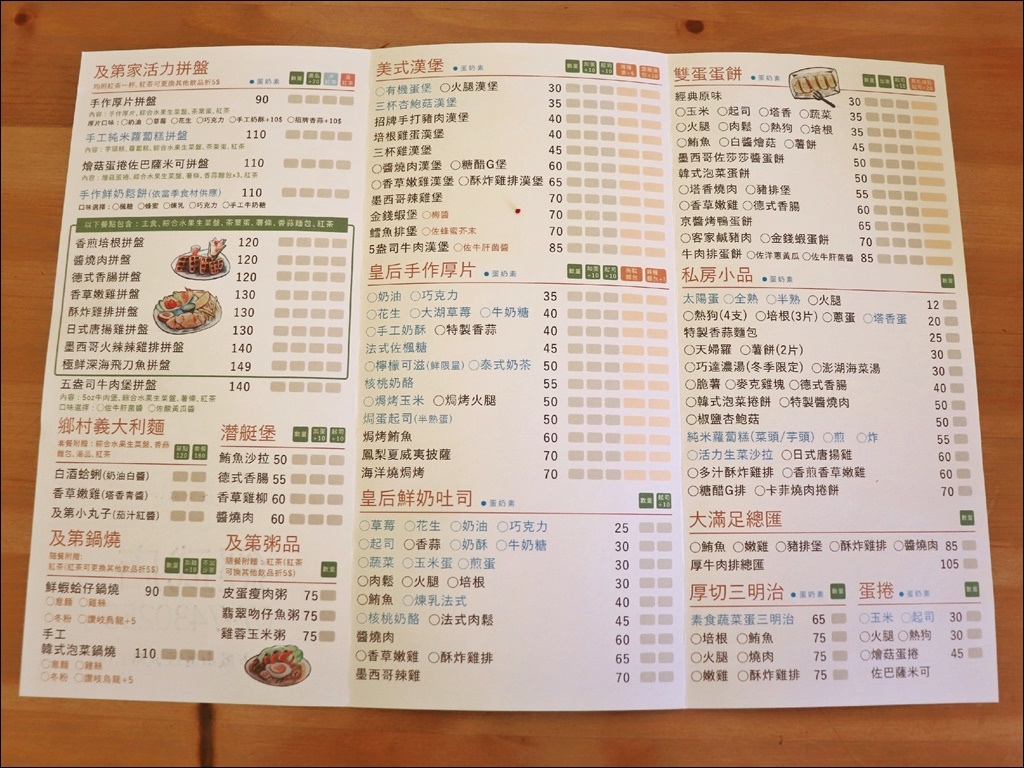 及第家活力拼盤
均附紅茶一杯, 紅茶可更換其他飲品折5$
●蛋奶素
手作厚片拼盤 90
內容：手作厚片, 綜合水果生菜盤, 茶葉蛋, 紅茶
厚片口味：○奶油 ○草莓 ○花生 ○巧克力 ○手工奶酥+10$ ○招牌香蒜+10$
手工純米蘿蔔糕拼盤 110
燴菇蛋捲佐巴薩米可拼盤 110
內容：燴菇蛋捲, 綜合水果生菜盤, 薯條, 香蒜麵包x3, 紅茶
手作鮮奶鬆餅(依當季食材供應) 110
口味選擇：○楓糖 ○蜂蜜 ○煉乳 ○巧克力 ○手工牛奶糖
以下餐點包含：主食, 綜合水果生菜盤, 茶葉蛋, 薯條, 香蒜麵包, 紅茶
香煎培根拼盤 120
醬燒肉拼盤 120
德式香腸拼盤 120
香草嫩雞拼盤 130
酥炸雞排拼盤 130
日式唐揚雞拼盤 130
墨西哥火辣辣雞排拼盤 140
極鮮深海飛刀魚拼盤 149
五盎司牛肉堡拼盤 140
內容：5oz牛肉堡, 綜合水果生菜盤, 薯條, 紅茶
口味選擇：○佐牛肝菌醬 ○佐酸黃瓜醬
鄉村義大利麵
套餐附贈：綜合水果生菜盤, 香蒜
麵包, 湯品, 紅茶
單點 120 套餐 180
白酒蛤蜊(奶油白醬)
香草嫩雞(塔香青醬)
及第小丸子(茄汁紅醬)
潛艇堡
數量 加蛋 +10 起司 +10
鮪魚沙拉 50
德式香腸 55
香草雞柳 60
醬燒肉 60
及第鍋燒
隨餐附贈：
紅茶(紅茶可更換其他飲品折5$)
鮮蝦蛤仔鍋燒 90
○意麵 ○雞絲
○冬粉 ○讚岐烏龍+5
手工
韓式泡菜鍋燒 110
○意麵 ○雞絲
○冬粉 ○讚岐烏龍+5
及第粥品
隨餐附贈：紅茶(紅茶
可換其他飲品折5$)
數量
皮蛋瘦肉粥 75
翡翠吻仔魚粥 75
雞蓉玉米粥 75
美式漢堡 ●蛋奶素
○有機蛋堡 ○火腿漢堡 30
三杯杏鮑菇漢堡 35
招牌手打豬肉漢堡 40
培根雞蛋漢堡 40
三杯雞漢堡 45
○醬燒肉漢堡 ○糖醋G堡 60
○香草嫩雞漢堡 ○酥炸雞排漢堡 65
墨西哥辣雞堡 70
金錢蝦堡 ○梅醬 70
鱈魚排堡 ○佐蜂蜜芥末 70
5盎司牛肉漢堡 ○佐牛肝菌醬 85
皇后手作厚片 ●蛋奶素
○奶油 ○巧克力 35
○花生 ○大湖草莓 ○牛奶糖 40
○手工奶酥 ○特製香蒜 40
法式佐楓糖 45
○檸檬可滋(鮮限量) ○泰式奶茶 50
核桃奶酪 55
○焗烤玉米 ○焗烤火腿 50
焗蛋起司(半熟蛋) 50
焗烤鮪魚 60
鳳梨夏威夷披薩 70
海洋燒焗烤 70
皇后鮮奶吐司 ●蛋奶素
數量 起司 +10
○草莓 ○花生 ○奶油 ○巧克力 25
○起司 ○香蒜 ○奶酥 ○牛奶糖 30
○蔬菜 ○玉米蛋 ○煎蛋 30
○肉鬆 ○火腿 ○培根 30
○鮪魚 ○煉乳法式 40
○核桃奶酪 ○法式肉鬆 45
醬燒肉 60
○香草嫩雞 ○酥炸雞排 65
墨西哥辣雞 70
雙蛋蛋餅 ●蛋奶素
經典原味 30
○玉米 ○起司 ○塔香 ○蔬菜 35
○火腿 ○肉鬆 ○熱狗 ○培根 35
○鮪魚 ○白醬燴菇 ○薯餅 45
墨西哥佐莎莎醬蛋餅 50
韓式泡菜蛋餅 50
○塔香燒肉 ○豬排堡 55
○香草嫩雞 ○德式香腸 60
京醬烤鴨蛋餅 65
○客家鹹豬肉 ○金錢蝦蛋餅 70
牛肉排蛋餅 ○佐洋蔥黃瓜 ○佐牛肝菌醬 85
私房小品 ●蛋奶素
數量
太陽蛋 ○全熟 ○半熟 ○火腿 12
○熱狗(4支) ○培根(3片) ○蔥蛋 ○塔香蛋 20
特製香蒜麵包 25
○天婦羅 ○薯餅(2片) 30
○巧達濃湯(冬季限定) ○澎湖海菜湯 30
○脆薯 ○麥克雞塊 ○德式香腸 40
○韓式泡菜捲餅 ○特製醬燒肉 50
○椒鹽杏鮑菇 50
純米蘿蔔糕(菜頭/芋頭) ○煎 ○炸 55
○活力生菜沙拉 ○日式唐揚雞 60
○多汁酥炸雞排 ○香煎香草嫩雞 60
○糖醋G排 ○卡菲燒肉捲餅 70
大滿足總匯
數量
○鮪魚 ○嫩雞 ○豬排堡 ○酥炸雞排 ○醬燒肉 85
厚牛肉排總匯 105
厚切三明治 ●蛋奶素
數量
素食蔬菜蛋三明治 65
○培根 ○鮪魚 75
○火腿 ○燒肉 75
○嫩雞 ○酥炸雞排 75
蛋捲 ●蛋奶素
數量
○玉米 ○起司 30
○火腿 ○熱狗 30
○燴菇蛋捲 45
佐巴薩米可